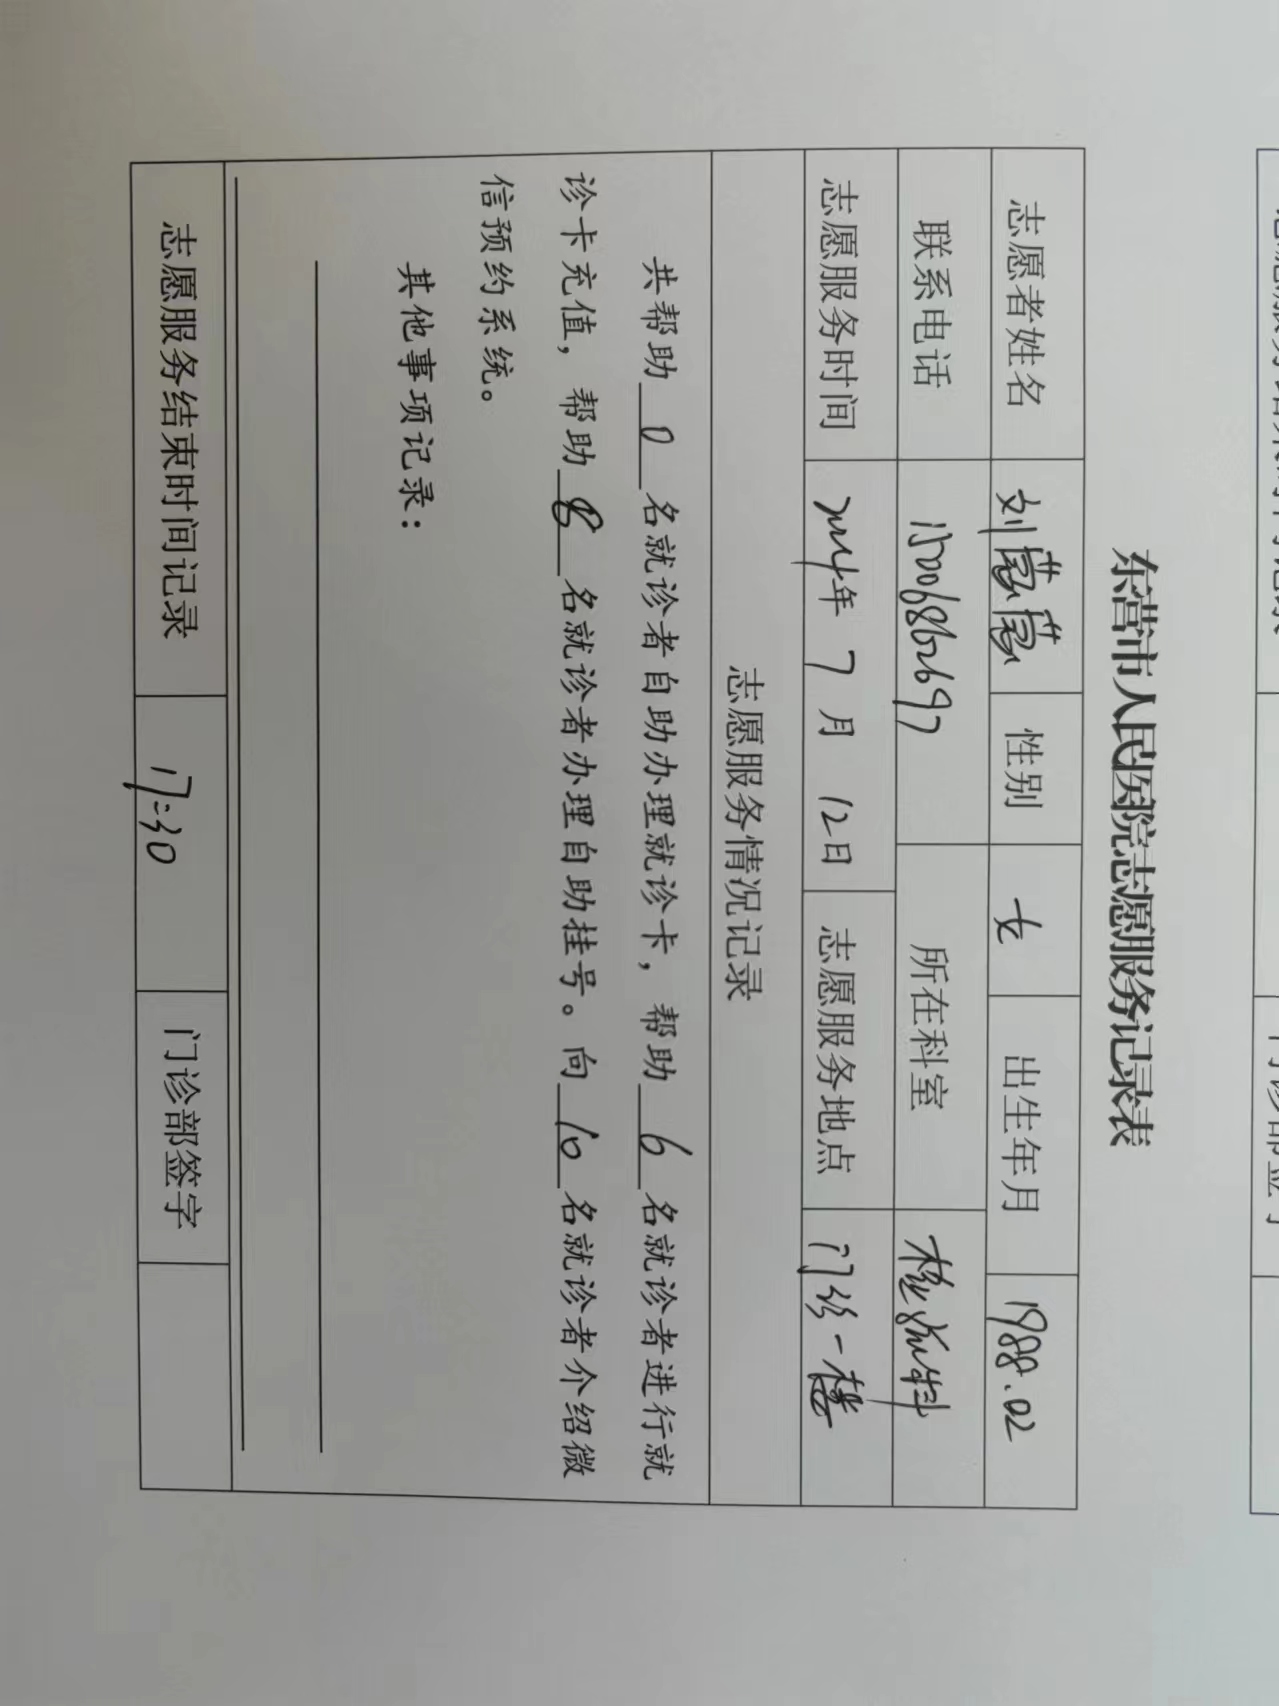 东营市人民医院志愿服务记录表
志愿者姓名 刘蒙蒙 性别 女 出生年月 1988.02
联系电话 15006862697 所在科室 检验科
志愿服务时间 2024年 7 月 12日 志愿服务地点 门诊一楼
志愿服务情况记录
共帮助 0 名就诊者自助办理就诊卡，帮助 6 名就诊者进行就
诊卡充值，帮助 8 名就诊者办理自助挂号。向 10 名就诊者介绍微
信预约系统。
其他事项记录：
志愿服务结束时间记录 17:30 门诊部签字